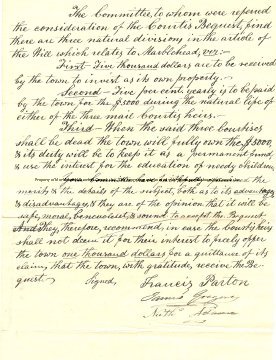 The Committee, to whom were referred
the consideration of the Courtis Bequest, find
there are three natural divisions in the article of
the Will which relates to Marblehead, viz:-
First- Five thousand dollars are to be received
by the town to invest as its own property.-
Second- Five per cent yearly is to be paid
by the town for the $5000 during the natural life of
either of the three mail Courtis heirs.-
Third- When the said three
shall be dead the town will fully own the $5000,
& its duty will be to keep it as a permanent fund,
& use the interest for the education of needy children.
Property of
merits & the details of the subject, both as to its advantages
& disadvantages, & they are of the opinion that it will be
safe, moral, benevolent, & sound to accept the Bequest.
And they, therefore, recommend, in case the Courtis heirs
shall not deem it for their interest to freely offer
the town one thousand dollars for a quittance of its
claim, that the town, with gratitude, receive the Be-
quest.- Signed, Francis Parton